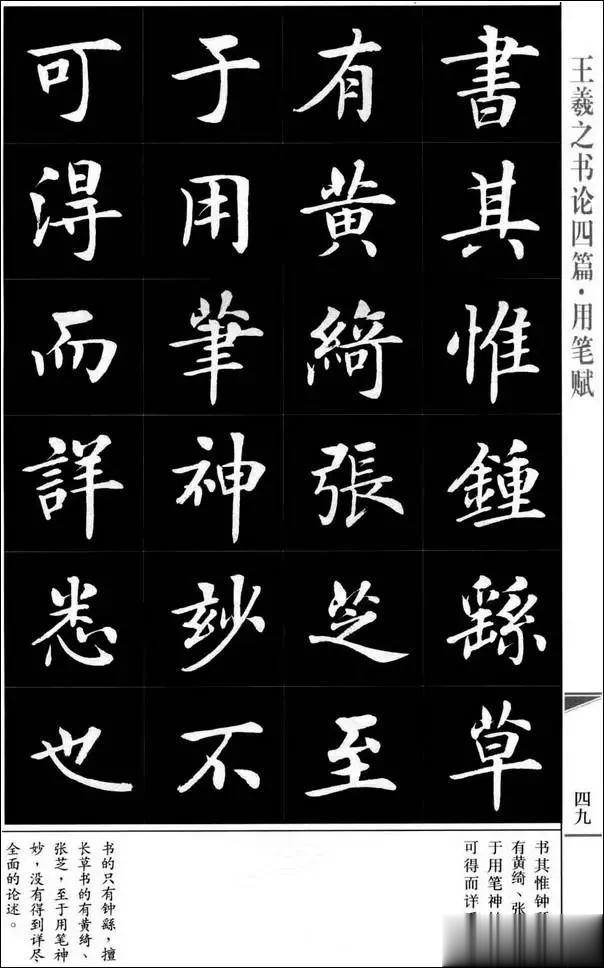 王羲之书论四篇·用笔赋
四九
書其惟鍾繇草
有黄綺張芝至
于用筆神玅不
可淂而詳悉也
书其惟钟
有黄绮、张
于用笔神
可得而详
书的只有钟繇，擅
长草书的有黄绮、
张芝，至于用笔神
妙，没有得到详尽
全面的论述。